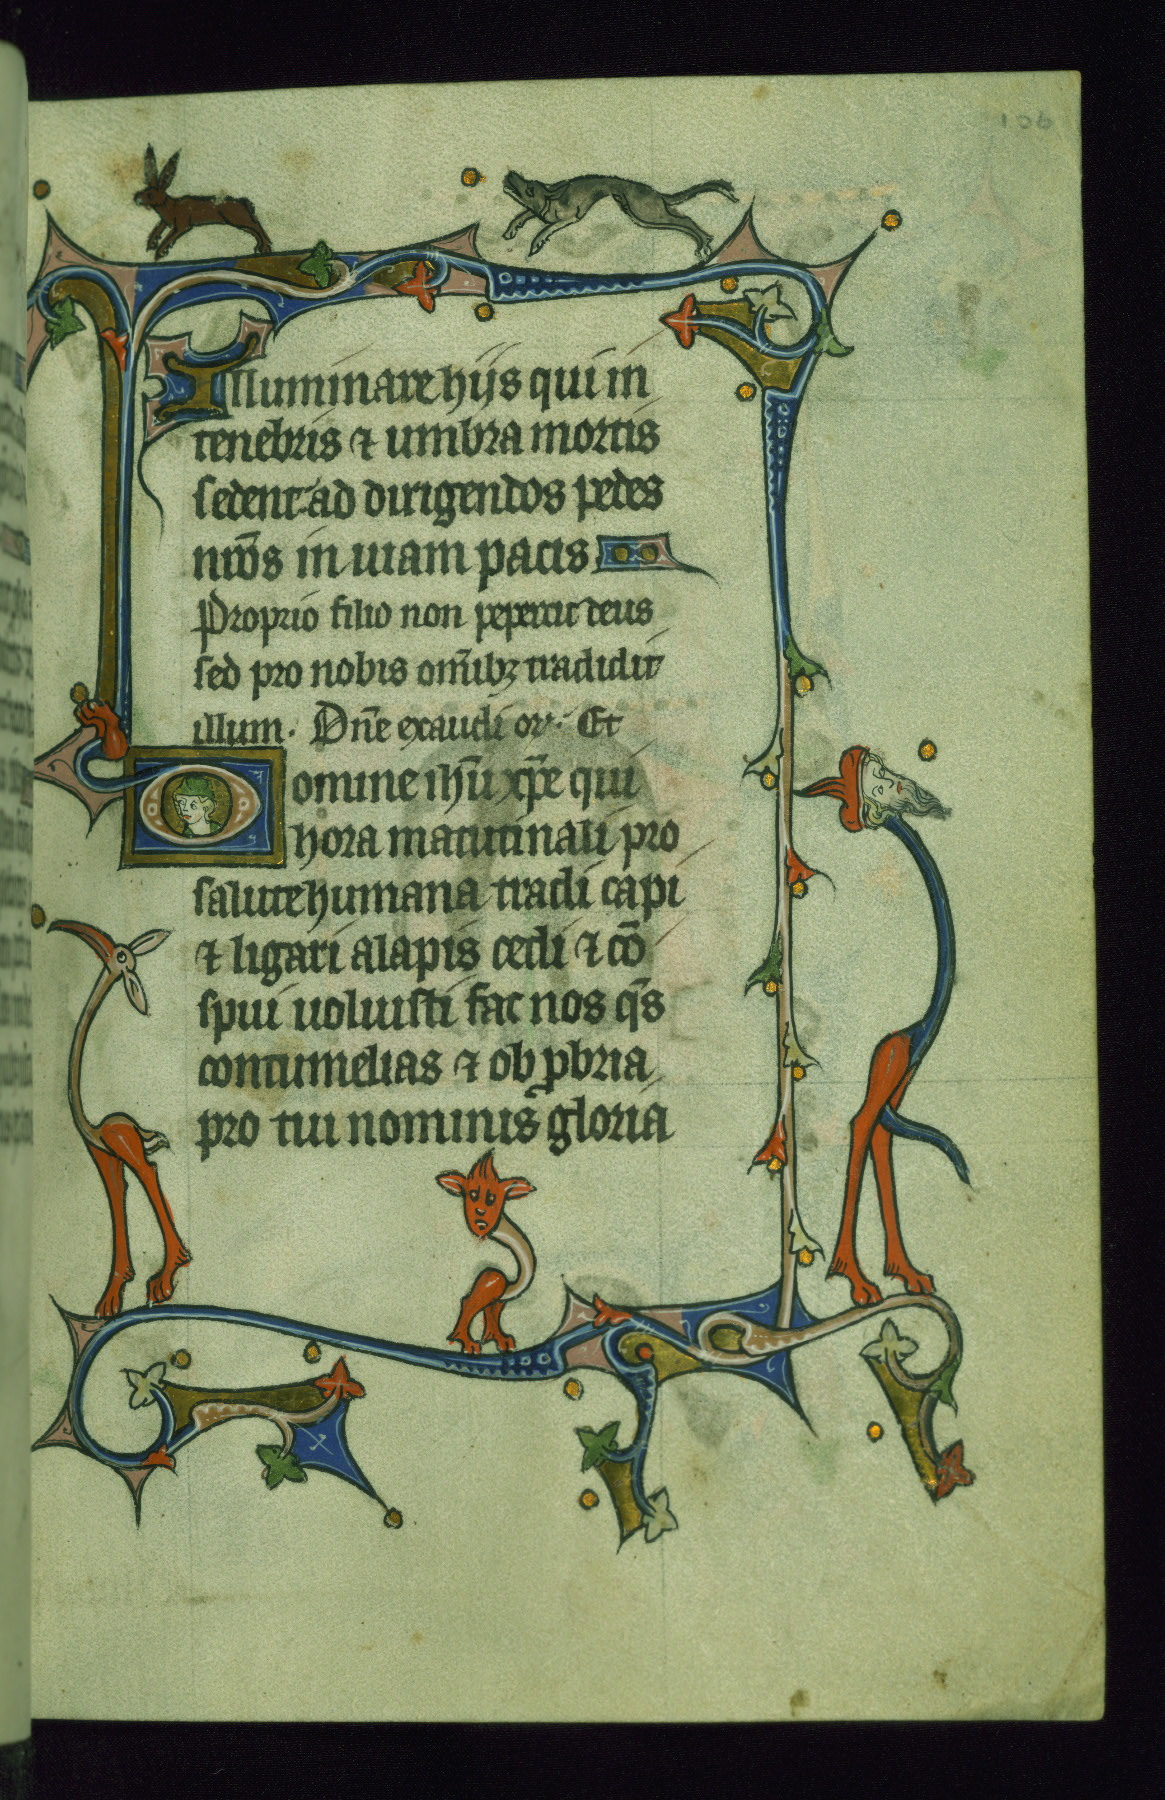 106
Illuminare hijs qui in
tenebris ⁊ umbra mortis
sedent ad dirigendos pedes
nr̄os in uiam pacis
Proprio filio non pepercit deus
sed pro nobis om̄ibꝫ tradidit
illum. Dn̄e exaudi or̄. Et
Domine ih̄u xp̄e qui
hora matutinali pro
salute humana tradi capi
⁊ ligari alapis cedi ⁊ cō
spui uoluisti fac nos q̄s
contumelias ⁊ ob ꝓbria
pro tui nominis gloria